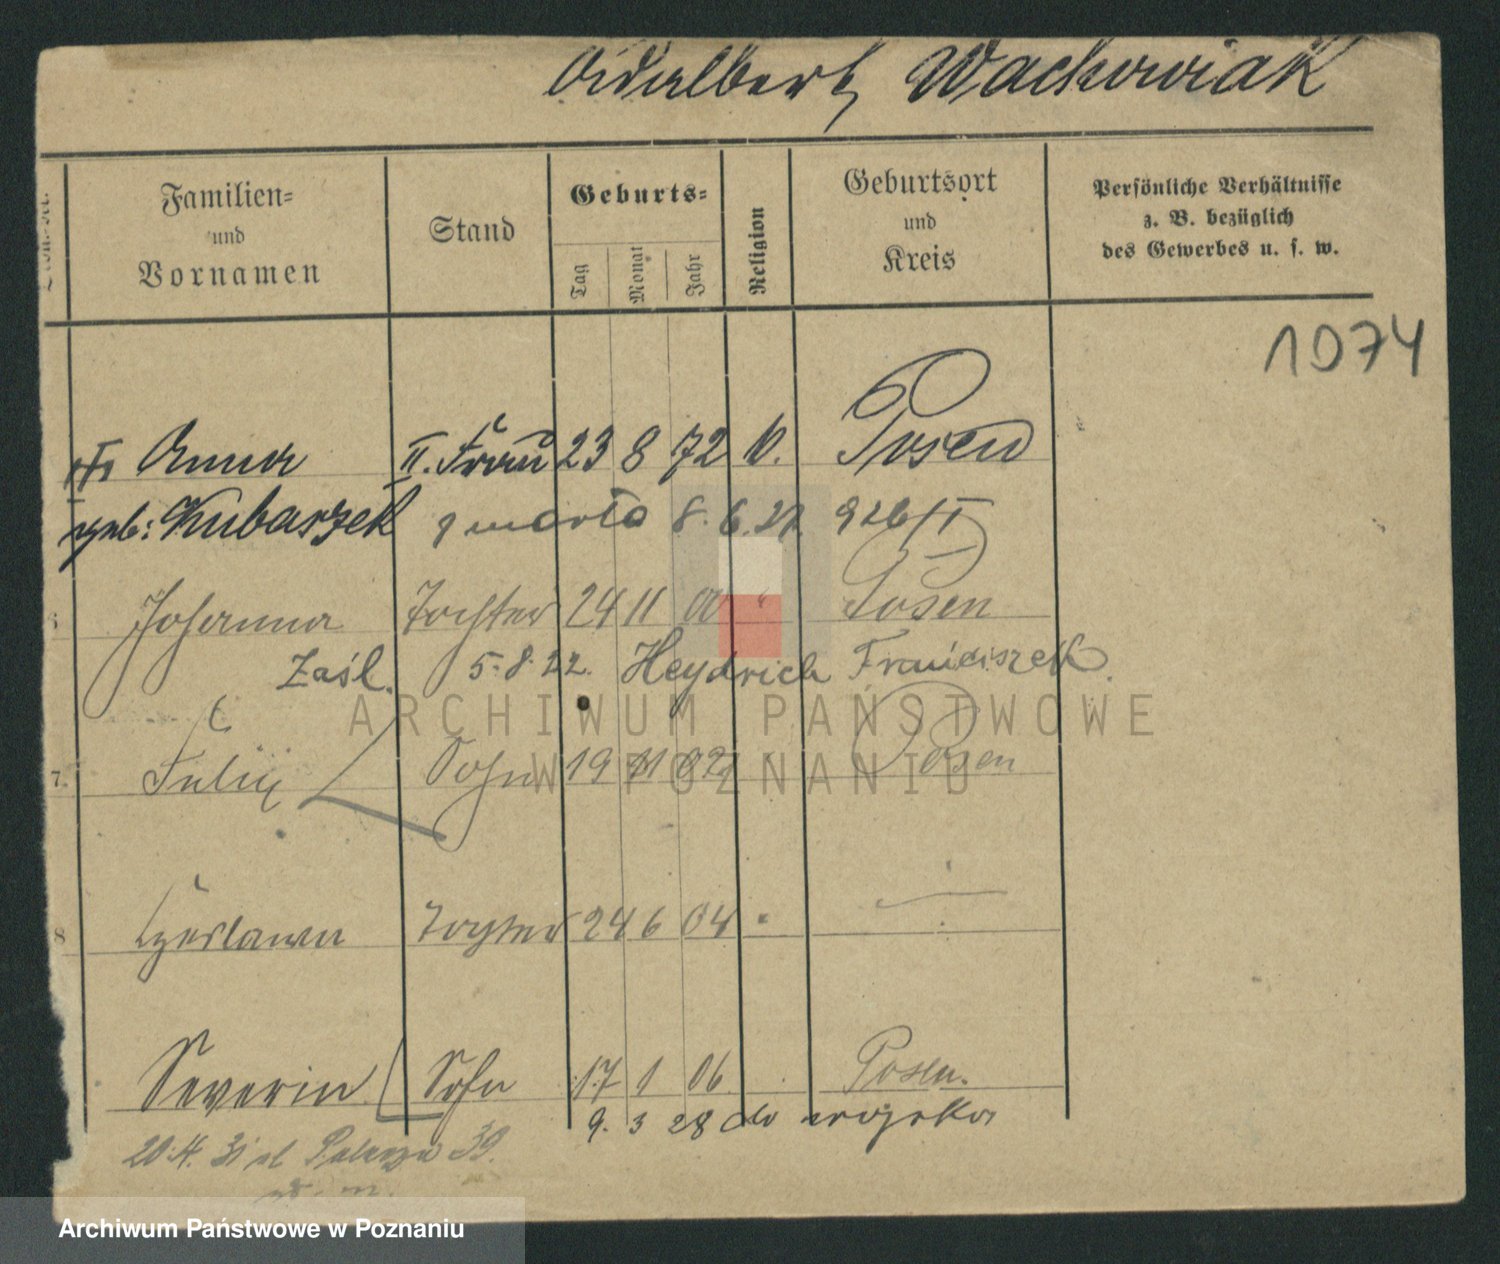 Adalbert Wachowiak
Familien=
und
Vornamen
Stand
Geburts=
Tag
Monat
Jahr
Religion
Geburtsort
und
Kreis
Persönliche Verhältnisse
z. B. bezüglich
des Gewerbes u. s. w.
1074
Anna II. Frau 23 8 72 k. Posen
geb: Kubaszek zmarła 8. 6. 27. 926/I
Johanna Tochter 24 11 00 " Posen
Zaśl. 5. 8. 22. Heydrich Franciszek.
7. Julij Sohn 19 11 02 Posen
8 Czeslawa Tochter 24 6 04 "
Severin Sohn 17 1 06 Posen.
9. 3 28 do wojska
20. 4. 31 ul 39.
ARCHIWUM PAŃSTWOWE
W POZNANIU
Archiwum Państwowe w Poznaniu